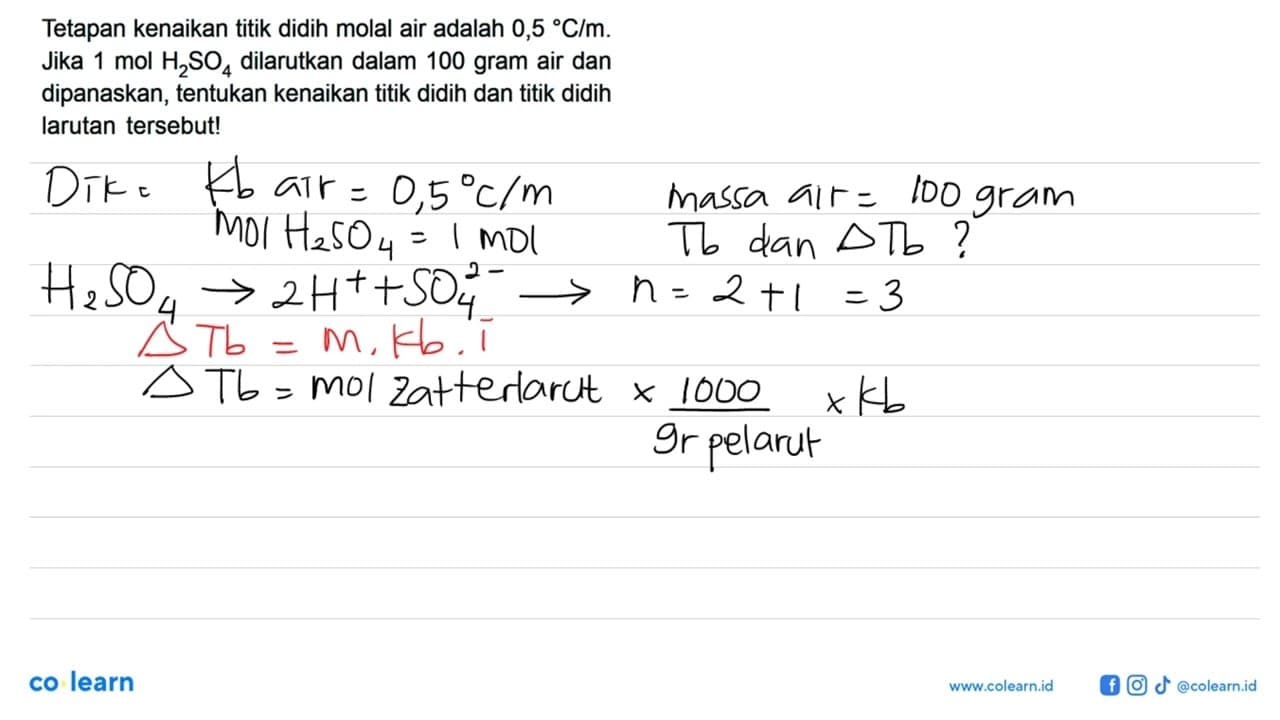 Tetapan kenaikan titik didih molal air adalah 0,5 °C/m.
Jika 1 mol H₂SO₄ dilarutkan dalam 100 gram air dan
dipanaskan, tentukan kenaikan titik didih dan titik didih
larutan tersebut!
Dik: Kb air = 0,5°C/m massa air = 100 gram
mol H₂SO₄ = 1 mol Tb dan ΔTb ?
H₂SO₄ → 2H⁺ + SO₄²⁻ → n = 2 + 1 = 3
ΔTb = m. Kb. i
ΔTb = mol zat terlarut x 1000 x Kb
gr pelarut
co learn
www.colearn.id @colearn.id